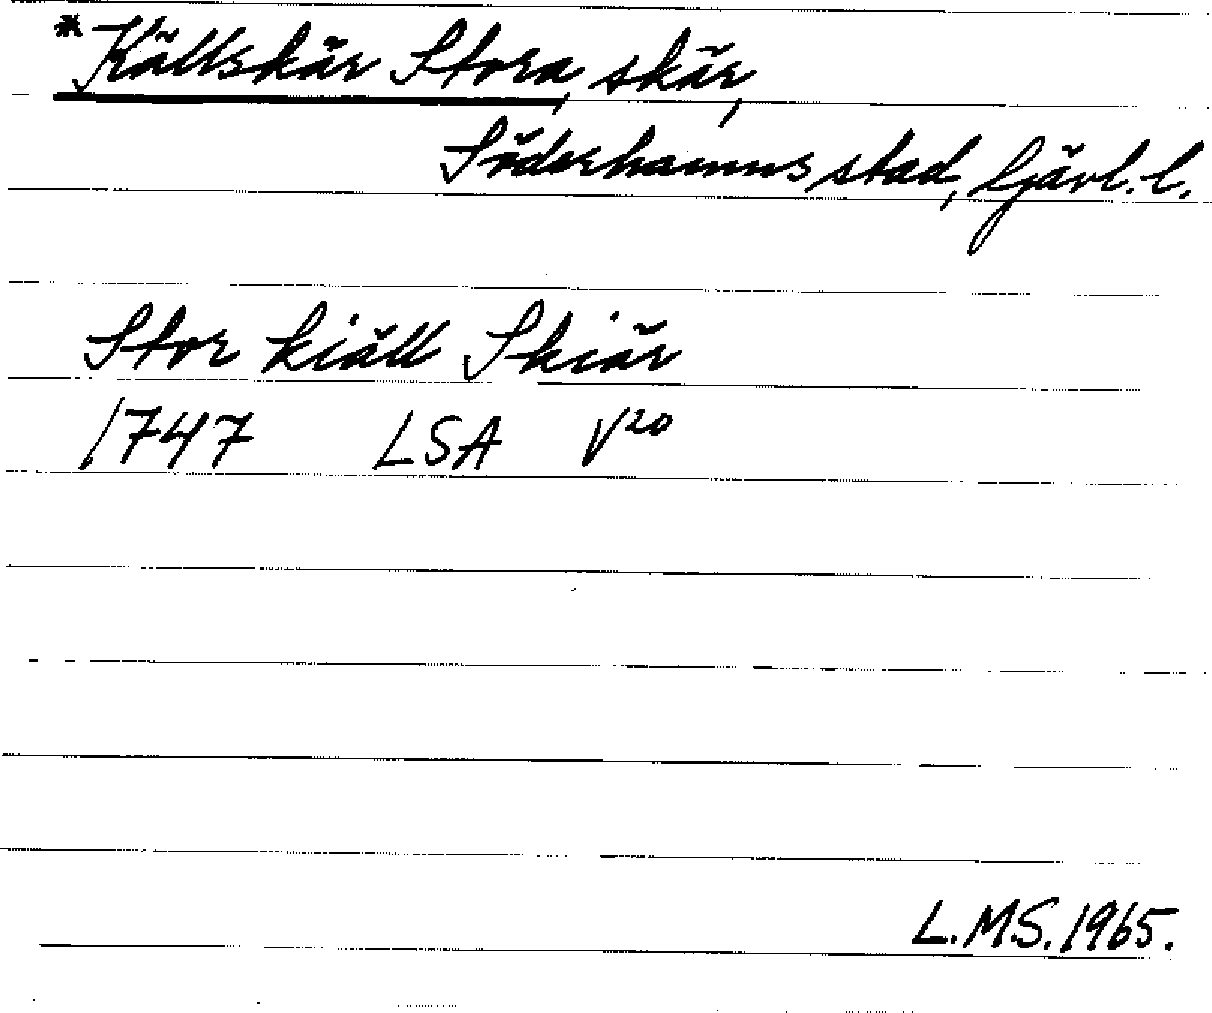 *Källskär Stora, skär,
Söderhamns stad, Gävl. l.
Stor kiäll Skiär
1747 LSA V²⁰
L.M.S. 1965.